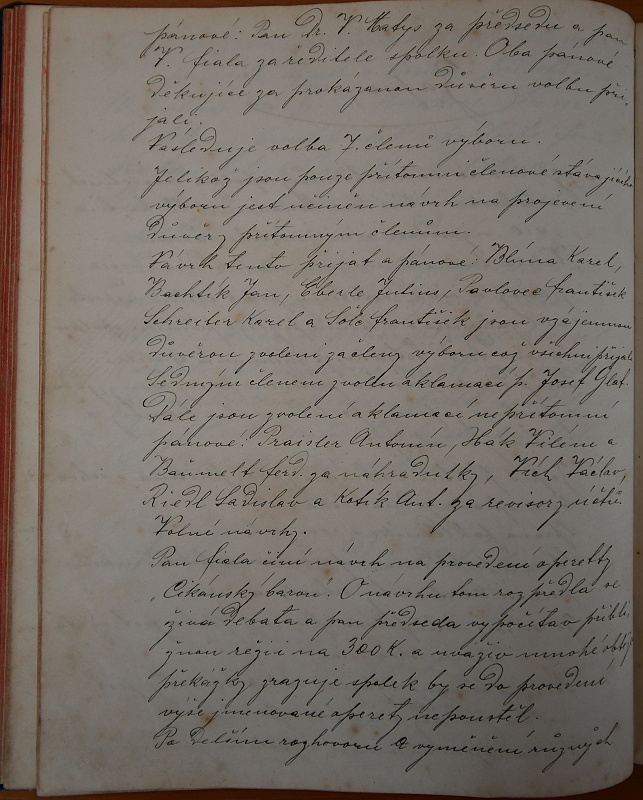 pánové: Pan Dr. V. Matys za předsedu a pan
V. Fiala za ředitele spolku. Oba pánové
děkujíce za prokázanou důvěru volbu při-
jali.
Následuje volba 7. členů výboru.
Jelikož jsou pouze přítomni členové stávajícího
výboru jest učiněn návrh na projevení
důvěry přítomným členům.
Návrh tento přijat a pánové: Blúna Karel,
Bachtík Jan, Eberle Julius, Pavlovec František
Schreiter Karel a Šolc František jsou vzájemnou
důvěrou zvoleni za členy výboru což všichni přijali
Sedmým členem zvolen aklamací p. Josef Glat.
Dále jsou zvoleni aklamací nepřítomní
pánové: Praisler Antonín, Hák Vilém a
Bäumelt Ferd. za náhradníky, Vích Václav,
Riedl Ladislav a Kotík Ant. za revisory účtů.
Volní návrhy.
Pan Fiala činí návrh na provedení operetty
„Cikánský baron". O návrhu tom rozpředla se
živá debata a pan předseda vypočítav přibli-
žnou režii na 300 K. a uváživ mnohé obtíže
překážky zrazuje spolek by se do provedení
výše jmenované operety nepouštěl.
Po delším rozhovoru a vyměnění různých